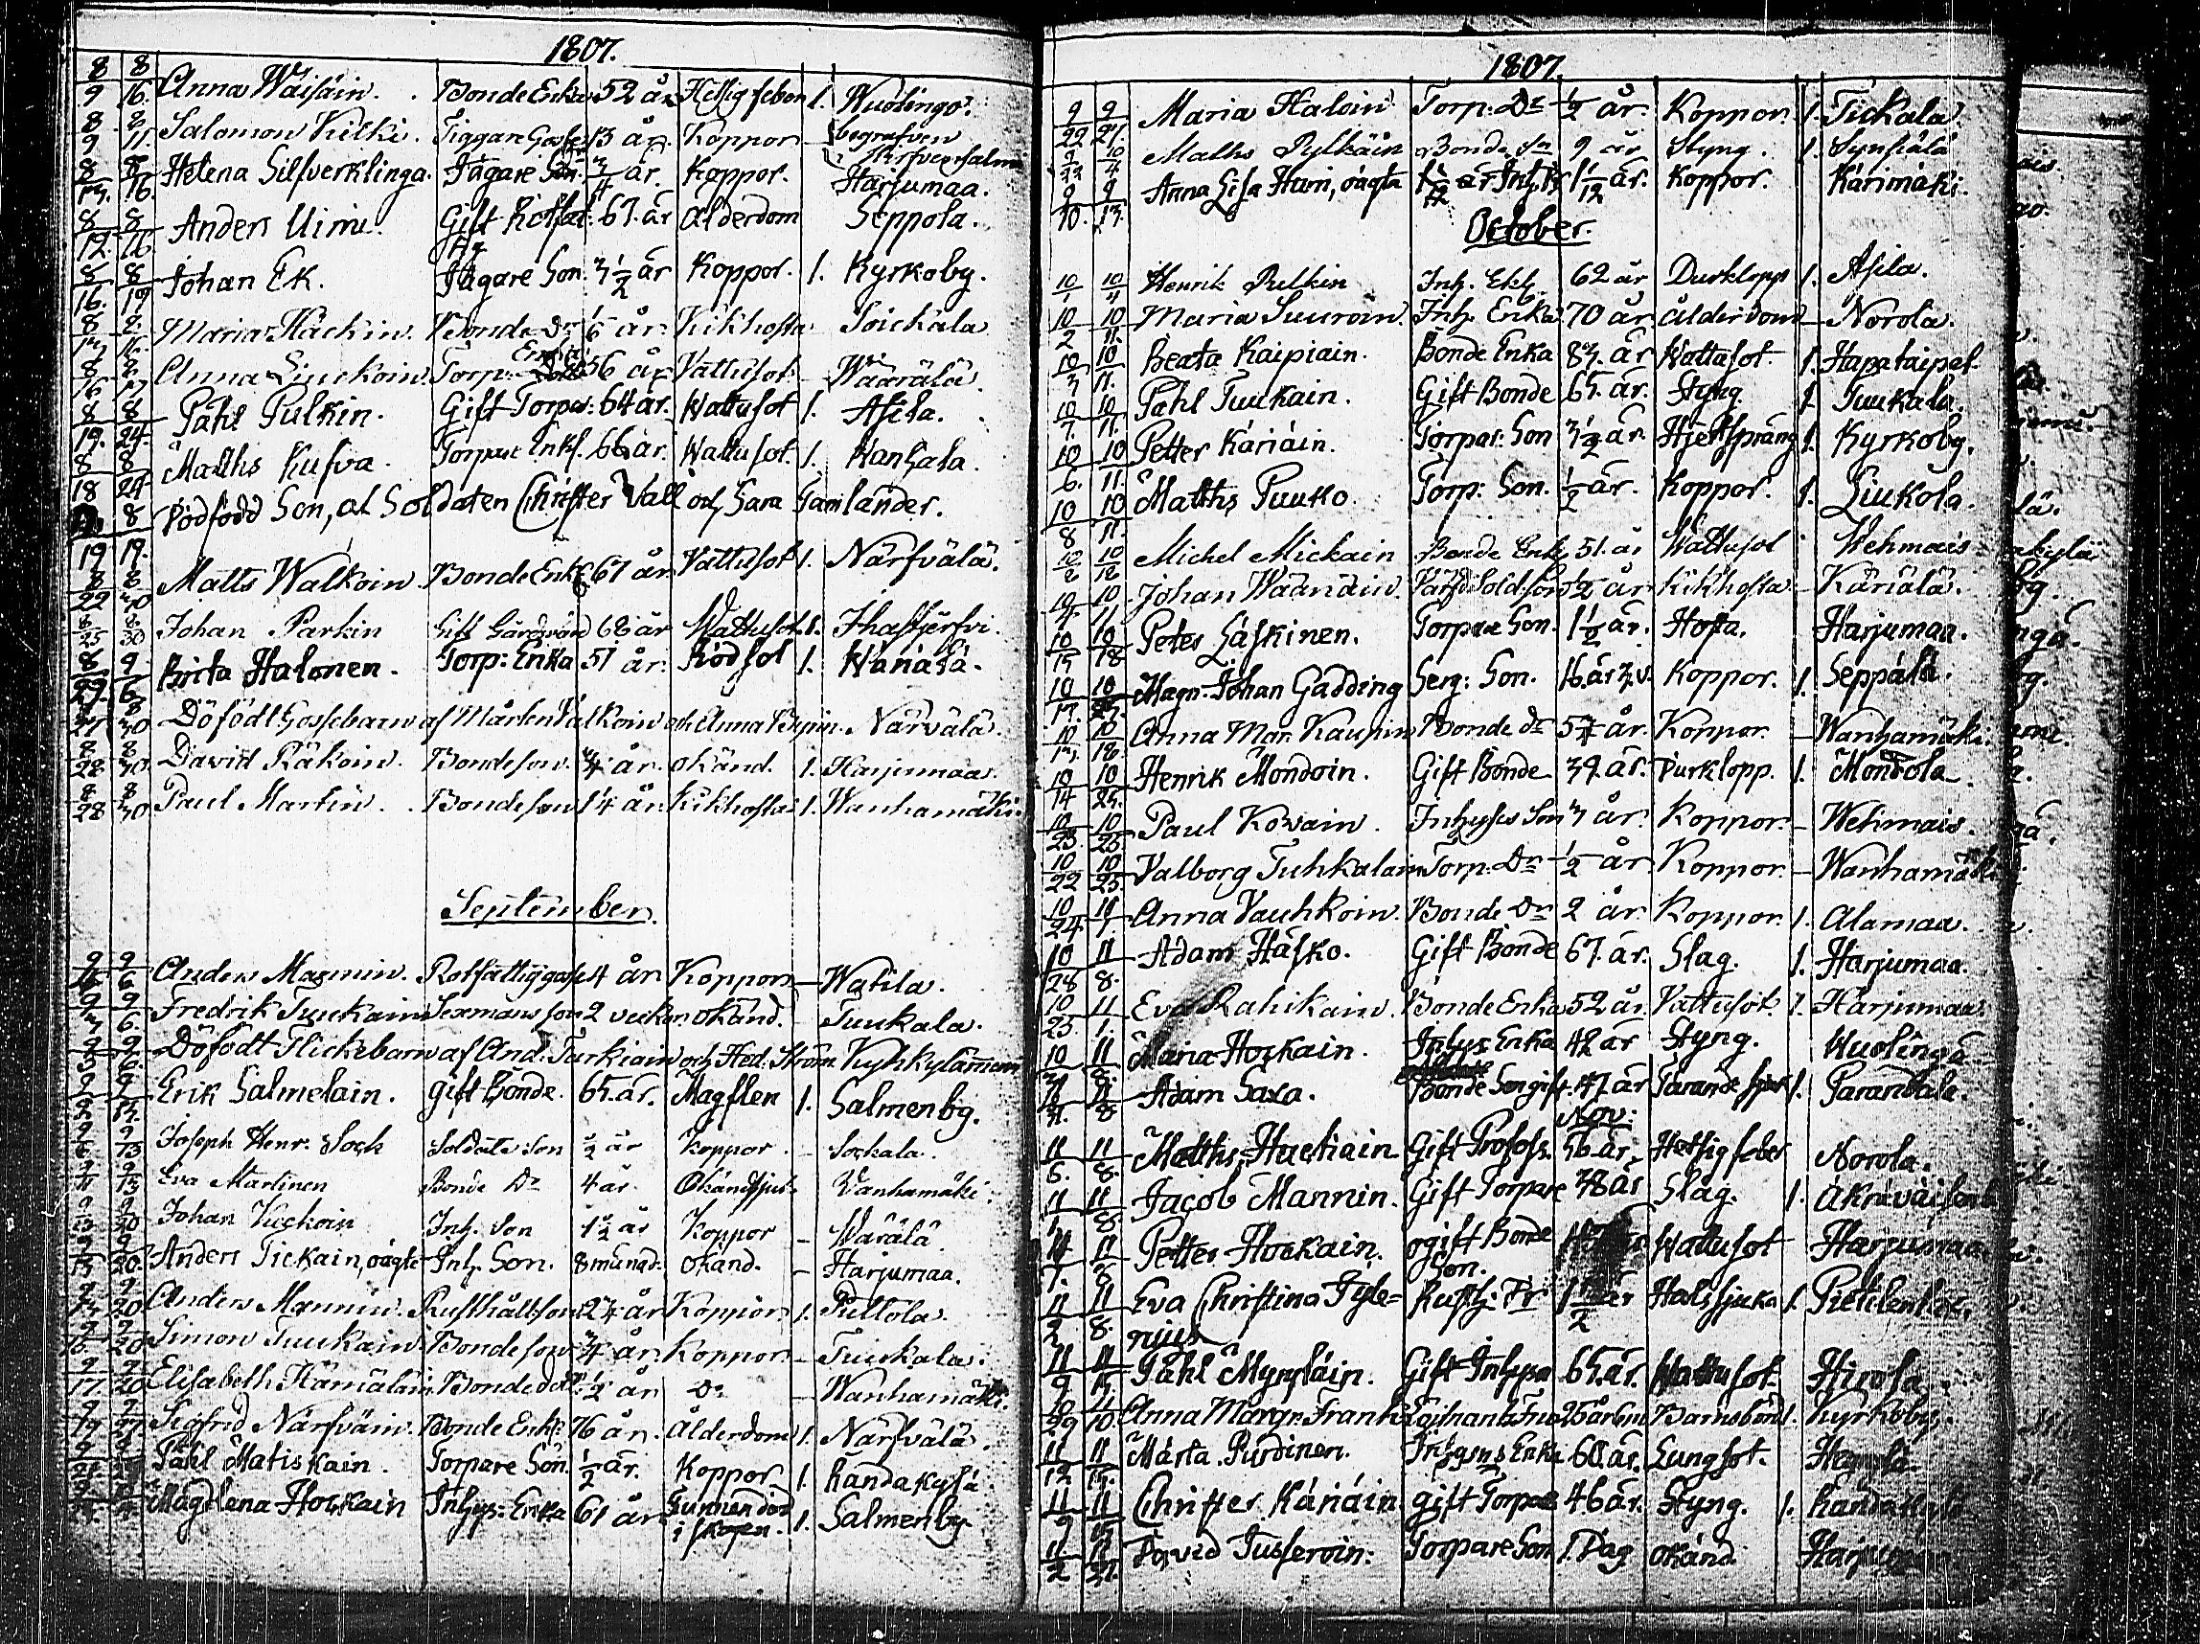 1807.
8/9 8/16. Anna Wäisäin. Bonde Enka 52 år Hettig feber 1. Wuolingo.
8/9 8/11. Salomon Kilki. Tiggare Gosse 13 år. Koppor begrafven i Hirfvensalmi
8/13. 8/16. Helena Silfverklinga. Jägare 3/4 år. Koppor. Harjumaa.
8/12. 8/16 Anders Uimi. Gift 67. år Ålderdom Seppola.
8/16. 8/19 Johan Ek. Jägare Son. 3 1/2 år Koppor. 1. Kyrkoby.
Maria Häckin. Bonde Dr 1/6 år. Kikhosta Soickala
8/16 Anna Liuckoin Torp: Enka 56 år Vattusot. Wäärälä.
8/19. 8/24. Påhl Pulkin. Gift Torpar: 64 år. Wattusot 1. Asila.
8/18 8/24. Matths Kusva. Torpare Enkl. 66 år. Wattusot. 1. Wanhala.
8/19 8/19. Dödfödd Son, af Soldaten Christer Vall och Sara Tamlander.
8/22 8/30 Matts Walkoin. Bonde Enkl 67 år Vattusot 1. Närfvälä.
8/25 8/30 Johan Parkin Gift 68 år Wattusot 1. Ihastjerfvi.
8/29. 9/6 Brita Halonen. Torp: Enka 51 år. Rödsot 1. Wanala.
8/27 8/30 Döfödt Gossebarn af Mårten Valkoin och Anna Närvälä.
8/28 8/30. David Räkoin. Bondeson. 3/4 år. okänd. 1. Harjumaa.
8/28 8/30 Paul Martin. Bondeson 1/4 år. Kikhosta 1. Wanhamäki.
September.
9/6 Anders Mannin. Rotfattiggoss 4 år Koppor — Watila.
9/3 9/6. Fredrik Tuukain Sexmans son 2 veckor. okänd. — Tuukala.
9/5 9/6. Döfödt Flickebarn af And. Turkiain och Hed. Ström. Kyhkylä
Erik Salmelain. gift Bonde. 65. år. Magflen 1. Salmenby.
9/6 9/13 Joseph Henr. Sock Soldate Son 1/2 år Koppor — Sockala.
9/13 Eva Martinen Bonde Dr 4 år. Okänd sjuk. Wanhamäki.
9/20 Johan Kuckoin Inh. Son 1 1/2 år Koppor — Wärälä.
9/13 9/20. Anders Tickain, oägte Inh. Son. 8 månad. okänd. — Harjumaa.
9/20 Anders Mannin. Rusthålls son 2 1/4 år Koppor 1. Pittola.
9/16. 9/20 Simon Tuukain. Bondeson 3/4 år. Koppor. — Tuukala.
9/17. 9/20 Elisabeth Hämäläin Bonde dott. 1/2 år Dr — Wanhamäki.
9/19 9/27 Sigfrid Närfväin. Bonde Enkl. 76 år. Ålderdom 1. Närfvälä.
Påhl Matiskain. Torpare Son. 1/2 år. Koppor 1. Randakylä.
Magdlena Hockain Inhys: Enka 61 år Funnen död i skogen. 1. Salmenby.
1807.
9/22 9/27. Maria Haloin Torp: Dr 1/2 år. Koppor. 1. Tickala.
9/23 10/4 Maths Pylkäin Bonde Sn 9 år Styng. 1. Synsiälä
9/10. 9/13. Anna Lisa Hari, oägta 1 1/12 år. Koppor. Kärimäki.
October.
10/1 10/4 Henrik Pulkin Inh. Ekl. 62 år Durklopp 1. Asila.
10/2 10/11. Maria Suuroin. Inh. Enka 70 år. Ålderdom — Norola.
10/3 10/11. Beata Kaipiain. Bonde Enka 83. år Wattusot 1. Hapataipal.
10/7. 10/11. Påhl Tuukain. Gift Bonde 65. år. Styng 1. Tuukala.
10/6. 10/11. Petter Käriäin. Torpar: Son 3 1/2 år Hjertsprång 1. Kyrkoby.
10/8 10/11. Matths Puuko. Torp: Son. 1/2 år. Koppor. 1. Liukola.
10/8 10/18 Michel Mickain Bonde Enkl 51. år Wattusot Wehmais
10/11 Johan Wäänäin. Värfd. Sold. son 1/2 år Kikhosta — Käriälä.
10/15 10/18 Peter Läskinen. Torpare Son. 1 1/2 år. Hosta. Harjumaa.
10/17. 10/25. Magn. Johan Gadding Serg: Son. 16. år 3. v. Koppor. 1. Seppälä.
10/13. 10/18. Anna Mar. Kaupin Bonde dr 5 1/4 år. Koppor. — Wanhamäki.
10/14 10/25. Henrik Mondoin. Gift Bonde 39. år. Durklopp. 1. Mondola.
10/23. 10/25 Paul Kowain. Inhyses Son 3 år. Koppor. — Wehmais.
10/22 10/25. Valborg Tuhkalain Torp: Dr 1/2 år Koppor. — Wanhamäki.
10/24. Anna Vauhkoin. Bonde Dr 2 år. Koppor. 1. Alamaa.
10/28 11/8. Adam Häsko. Gift Bonde 67. år. Slag. 1. Harjumaa.
10/25. 11/1. Eva Rahikain. Bonde Enka 52 år. Vattusot. 1. Harjumaa.
Maria Hockain. Inhys Enka 42 år Styng. Wuolinga
11/8 Adam Saxa. Bonde Son gift. 47. år Tärande sjuk. 1. Parandala.
Nov:
11/6. 11/8. Matths Huctiain Gift Profoss. 56 år. Hettig feber Norola.
11/8. Jacob Mannin. Gift Torpare 38 år Slag. 1.
11/7. 11/8 Petter Hockain. ogift Bonde Son. Wattusot Harjumaa
11/2. 11/8. Eva Christina Tyle=nius Rusth: Dr 1 1/2 år Halssjuka 1.
11/9 11/15. Påhl Mynttäin. Gift Inhyse 65. år. Wattusot Hirola.
10/29 11/10. Anna Margr. Frank 26 år Barnsbörd 1. Kyrkoby.
11/12 11/15. Märta Purdinen. Inhyses Enka 60. år. Lungsot.
11/9 11/15 Christer Käriäin. gift Torpare 46 år. Styng. 1. Randakylä
11/2 David Tusseroin. Torpare Son 1. Dag okänd. Harjumaa